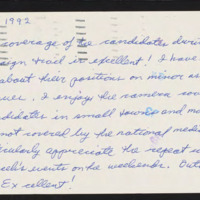 1992
coverage of the candidates duri
ign trail is expellent! I have
about their positions on minor as
ues. I enjoy the camera cov
didates in small towns and me
not covered by the national medi
ularly appreciate the repeat of
eek's events on the weekends. Outs
Excellent!